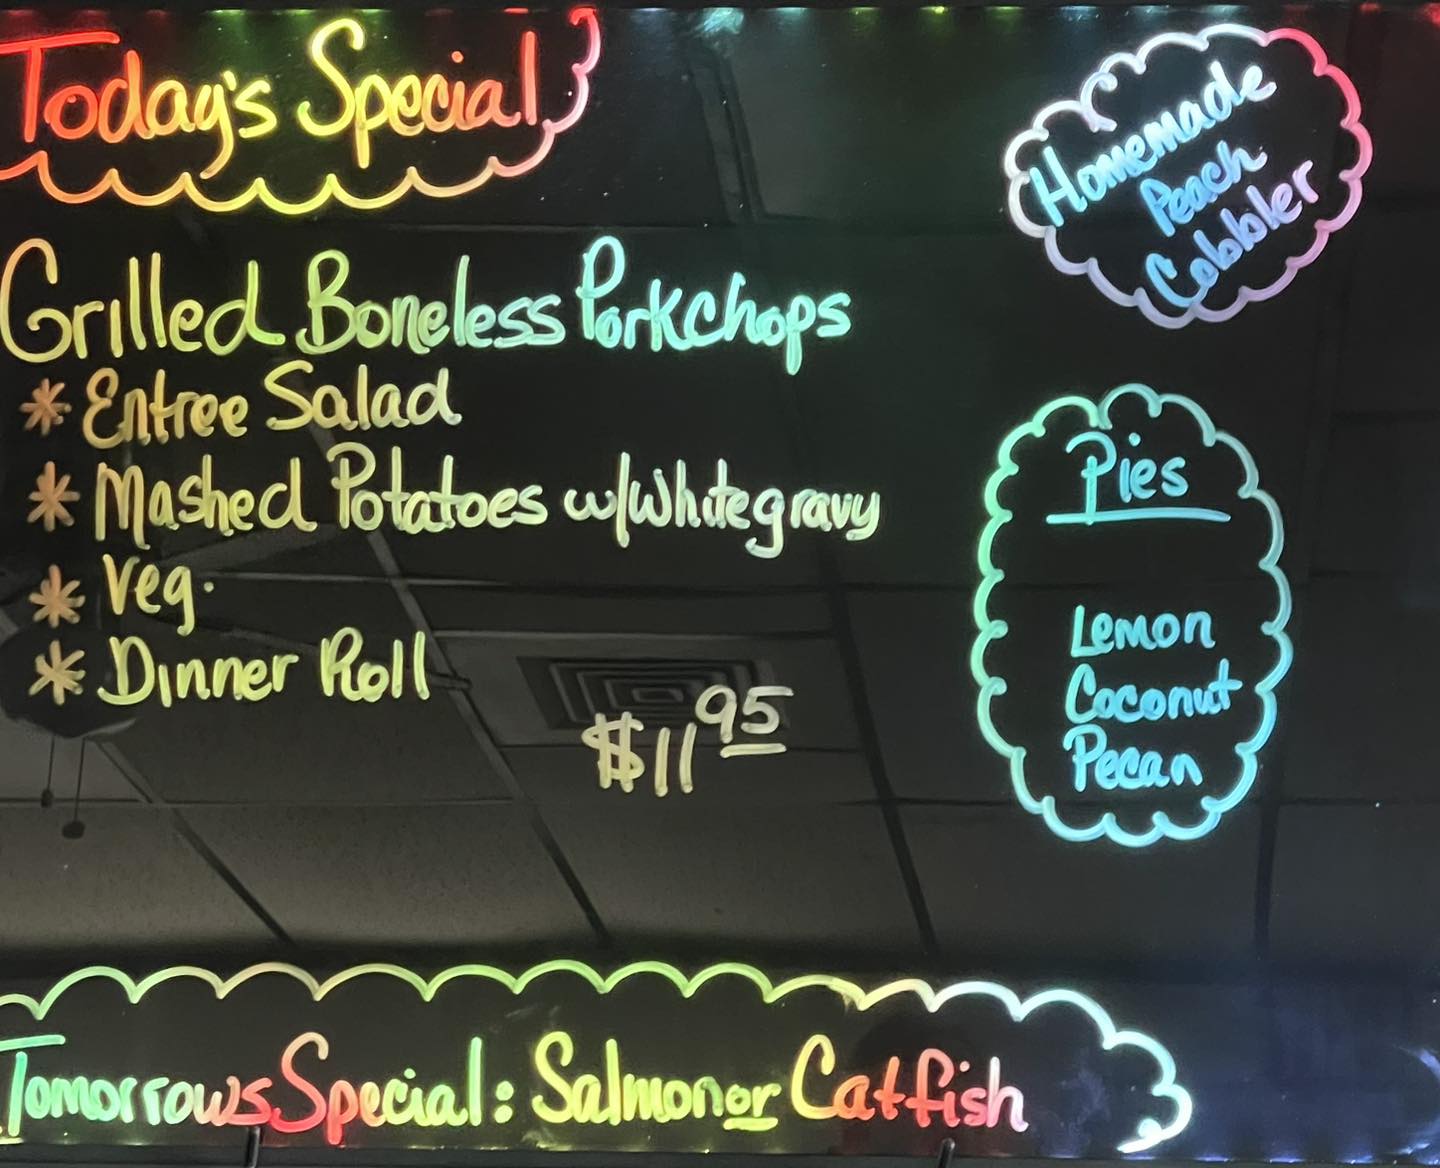 Today's Special
Grilled Boneless Porkchops
* Entree Salad
* Mashed Potatoes w/Whitegravy
* Veg.
* Dinner Roll
$11 95
Homemade
Peach
Cobbler
Pies
Lemon
Coconut
Pecan
Tomorrows Special: Salmon or Catfish